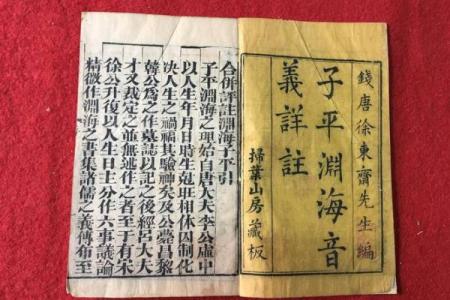 錢唐徐東齋先生編
子平淵海音
義詳註
掃葉山房藏板
合併評註淵海子平引
子平淵海之理始自唐大夫李公虛中
以人生年月日時生尅旺相休囚制化
決人生之禍福其驗神矣及公薨昌黎
韓公爲之作墓誌以記之後經呂大夫
才又裁定之並無述作之者至于有宋
徐公升復以人生日主分作六事議論
精微作淵海之書集諸儒之義傳布至